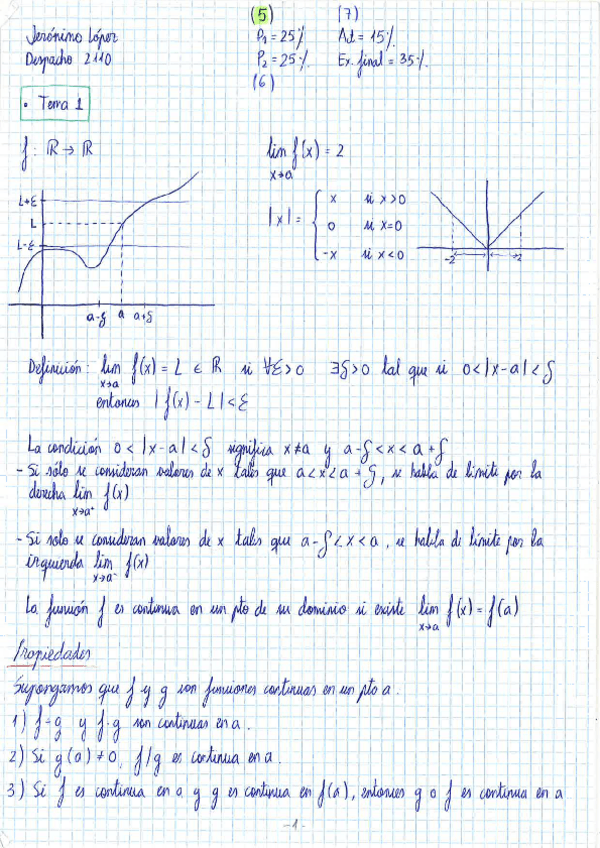 (5) (7)
Jerónimo López P₁ = 25% Act = 15%
Despacho 2110 P₂ = 25% Ex. final = 35%.
(6)
• Tema 1
f: ℝ → ℝ lim f(x) = 2
x→a
L+ε
L
L-ε
a-δ a a+δ
|x| = { x si x>0
0 si x=0
-x si x<0
-2 2
Definición: lim f(x) = L ∈ ℝ si ∀ε>0 ∃δ>0 tal que si 0<|x-a|<δ
x→a
entonces |f(x) - L|<ε
La condición 0<|x-a|<δ significa x≠a y a-δ<x<a+δ
- Si sólo se consideran valores de x tales que a<x<a+δ, se habla de límite por la
derecha lim f(x)
x→a⁺
- Si solo se consideran valores de x tales que a-δ<x<a, se habla de límite por la
izquierda lim f(x)
x→a⁻
La función f es continua en un pto de su dominio si existe lim f(x) = f(a)
x→a
Propiedades
Supongamos que f y g son funciones continuas en un pto a.
1) f-g y f·g son continuas en a.
2) Si g(a)≠0, f/g es continua en a.
3) Si f es continua en a y g es continua en f(a), entonces g o f es continua en a
-1-